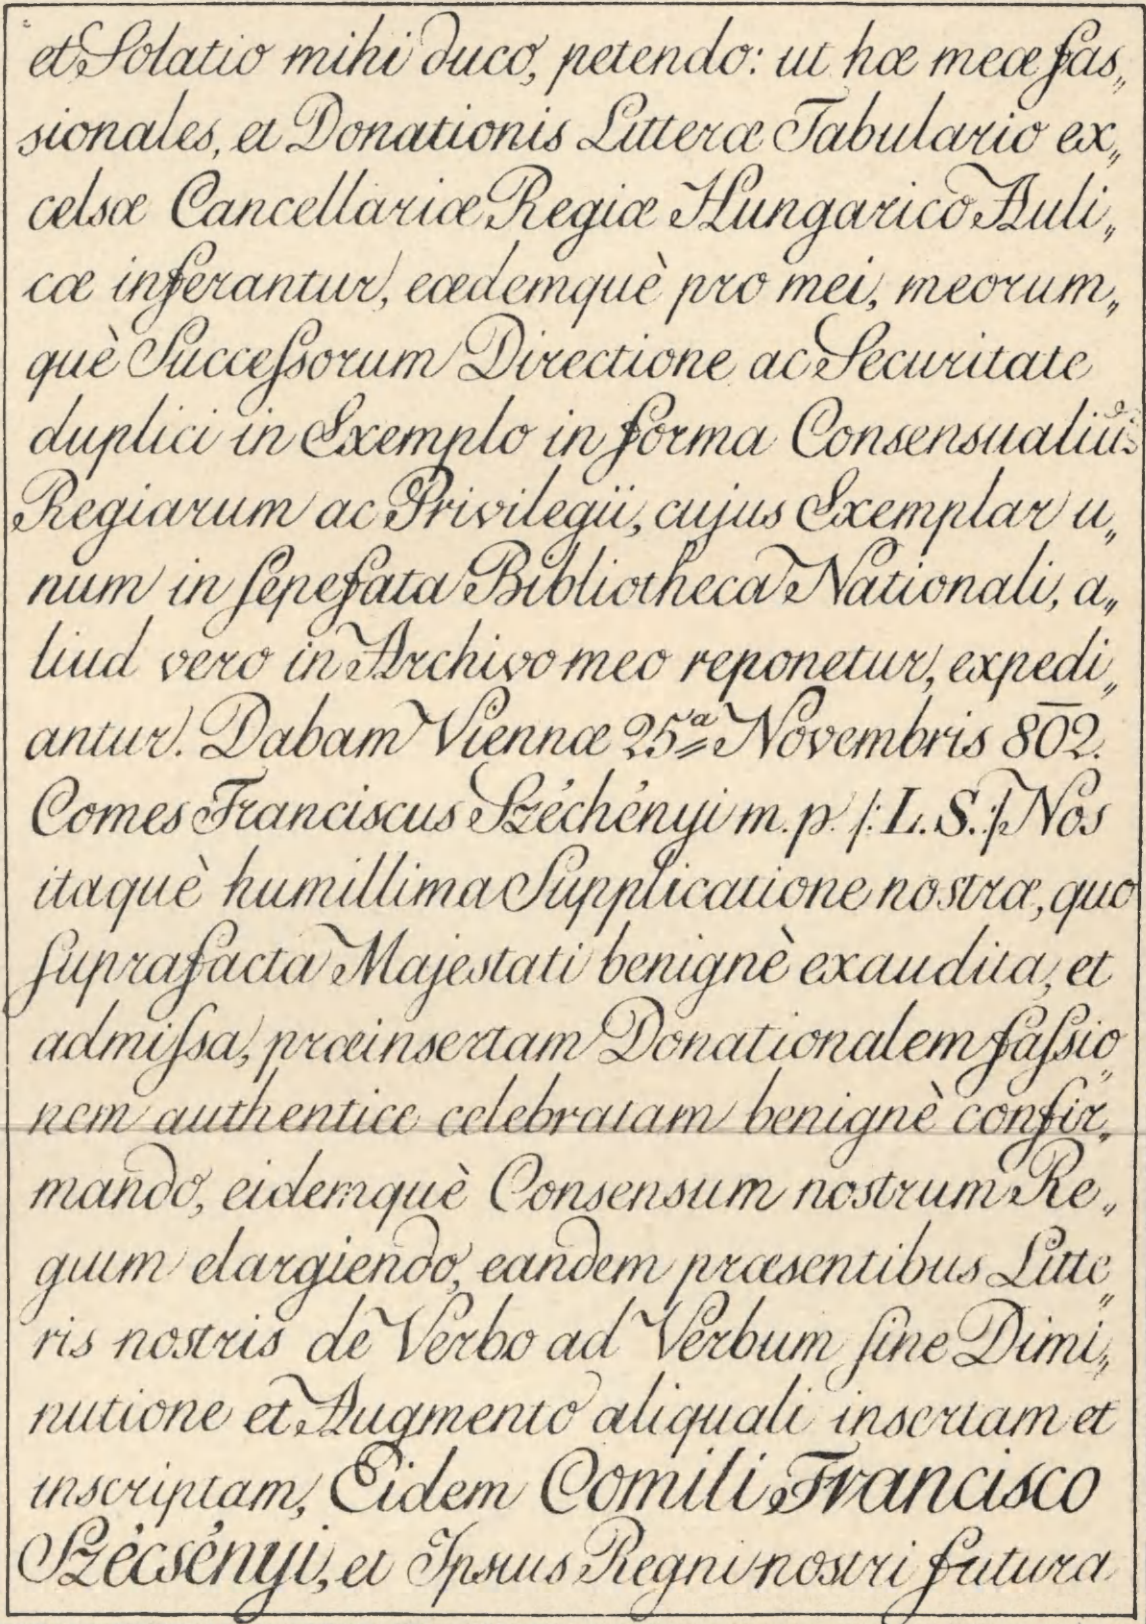 et Solatio mihi duco, petendo: ut hæ meæ fas„
sionales, et Donationis Litteræ Tabulario ex„
celsæ Cancellariæ Regiæ Hungarico Auli„
cæ inferantur, eædemquè pro mei, meorum„
què Succeſsorum Directione ac Securitate
duplici in Exemplo in forma Consensualiũ
Regiarum ac Privilegii, cujus Exemplar u„
num in ſepefata Bibliotheca Nationali, a„
liud vero in Archivo meo reponetur, expedi„
antur. Dabam Viennæ 25ª Novembris 802.
Comes Franciscus Széchényi m. p. /: L. S. :/ Nos
itaquè humillima Supplicatione nostræ, quo
ſuprafacta Majestati benignè exaudita, et
admiſsa, præinsertam Donationalem faſsio„
nem authentice celebratam benignè confir„
mando, eidemquè Consensum nostrum Re„
gium elargiendo, eandem præsentibus Litte„
ris nostris de Verbo ad Verbum ſine Dimi„
nutione et Augmento aliquali insertam et
inscriptam, Eidem Comiti Francisco
Szécsényi, et Ipsius Regni nostri futura